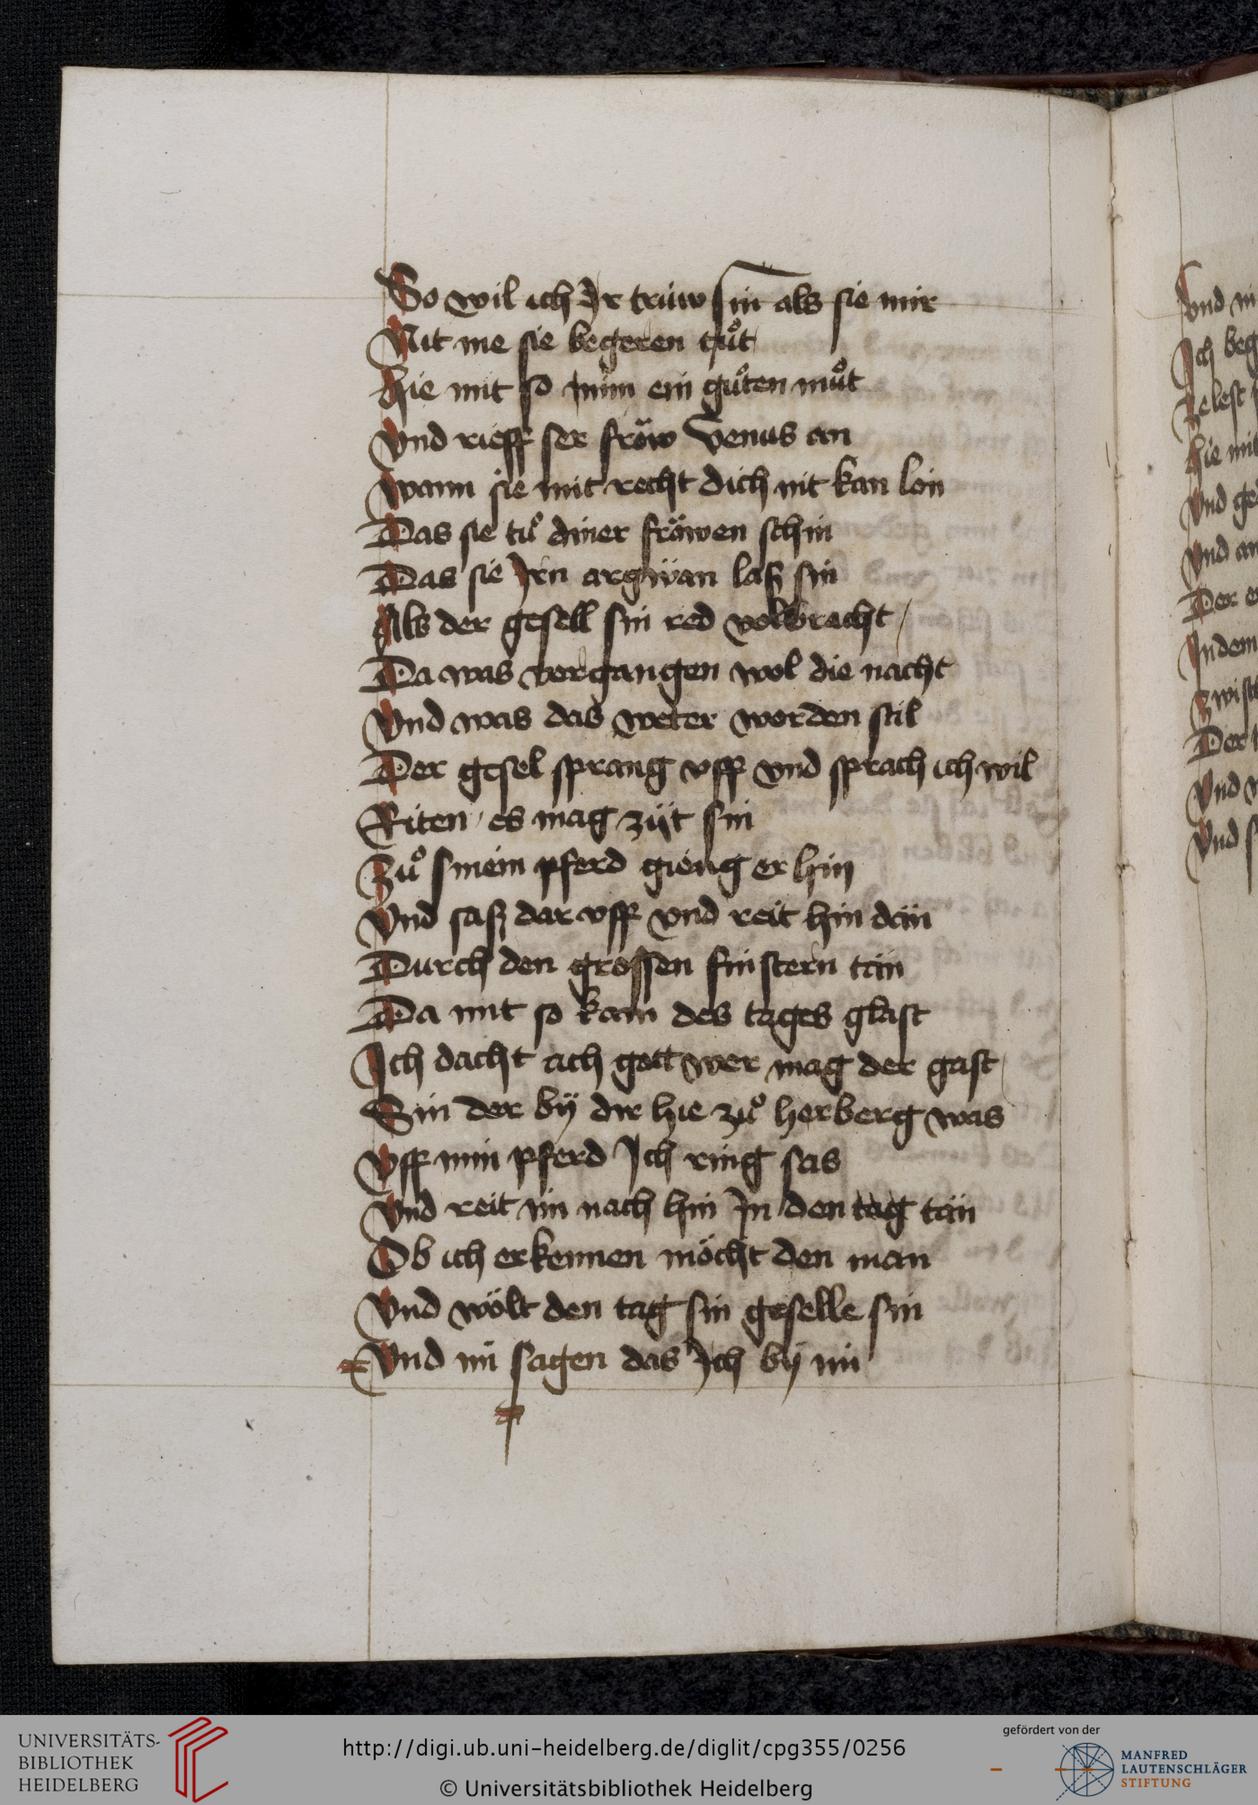 So wil ich Ir trüw sin als sie mir
Nit me sie begeren tuͦt
Hie mit so nim ein guͦten muͦt
Vnd rieff ser fröw Venus an
Wann sie mit recht dich nit kan lon
Das sie tuͦ diner fröwen schin
Das sie Irn argwan laß sin
Als der gesell sin red volbracht /
Da was vergangen wol die nacht
Vnd was das weter worden stil
Der gesel sprang vff vnd sprach ich wil
Riten es mag zijt sin
Zuͦ sinem pferd gieng er hin
Vnd saß dar vff vnd reit hin dan
Durch den grossen finstern tan
Da mit so kam des tages glast
Ich dacht ach gott wer mag der gast
Sin der bij dir hie zuͦ herberg was
Vff min pferd Ich ring sas
Vnd reit im nach hin In den tag tan
Ob ich erkennen möcht den man
Vnd wölt den tag sin geselle sin
Vnd im sagen das Ich bij im
Vnd
Ich beg
Hie mit
Vnd
Vnd
Der
Indem
Der
Vnd
Vnd
UNIVERSITÄTS-
BIBLIOTHEK
HEIDELBERG
http://digi.ub.uni-heidelberg.de/diglit/cpg355/0256
© Universitätsbibliothek Heidelberg
gefördert von der
MANFRED
LAUTENSCHLÄGER
STIFTUNG